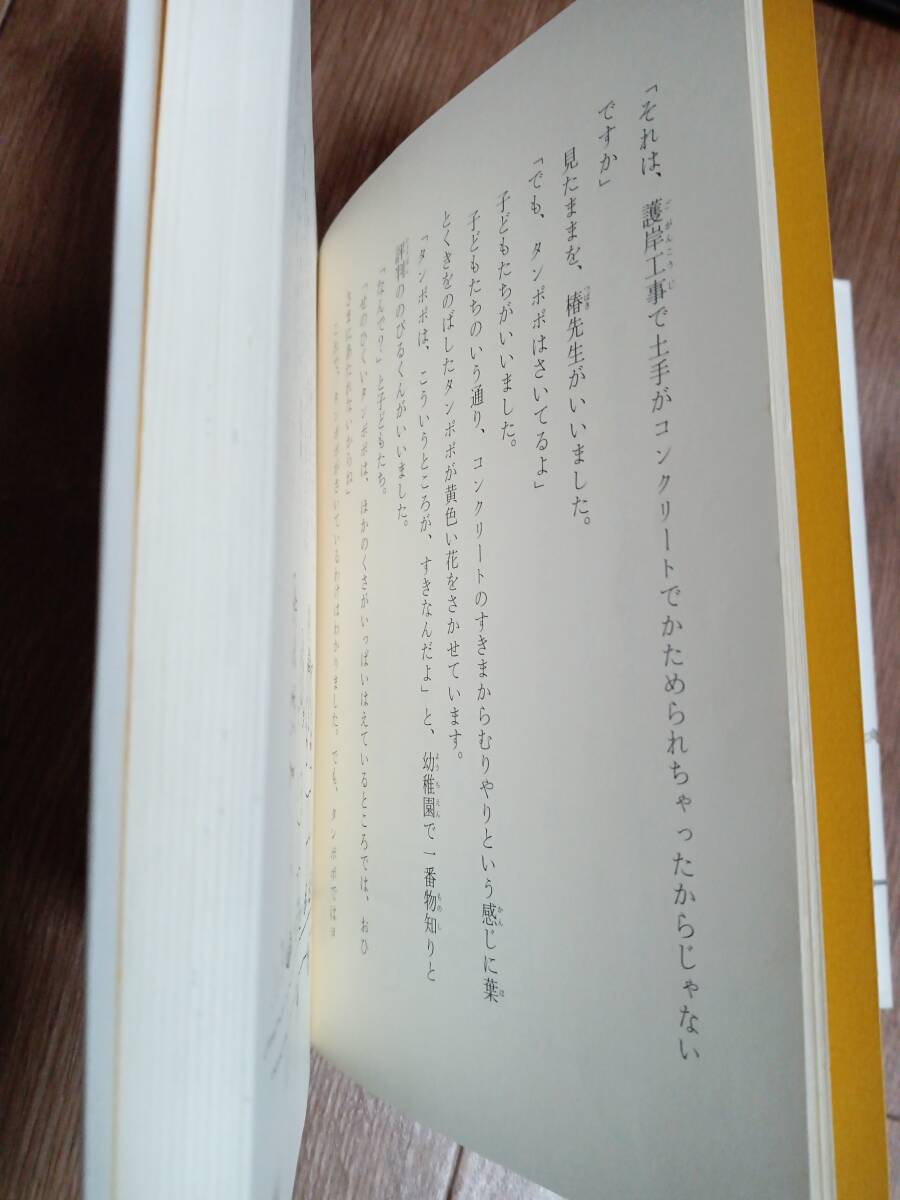 「それは、護岸工事で土手がコンクリートでかためられちゃったからじゃない
ですか」
見たままを、椿先生がいいました。
「でも、タンポポはさいてるよ」
子どもたちがいいました。
子どもたちのいう通り、コンクリートのすきまからむりやりという感じに葉
とくきをのばしたタンポポが黄色い花をさかせています。
「タンポポは、こういうところが、すきなんだよ」と、幼稚園で一番物知りと
評判ののびるくんがいいました。
「なんで？」と子どもたち。
「せのひくいタンポポは、ほかのくさがいっぱいはえているところでは、おひ
さまにあたれないからね」
これで、タンポポがさいているわけはわかりました。でも、タンポポではヨ